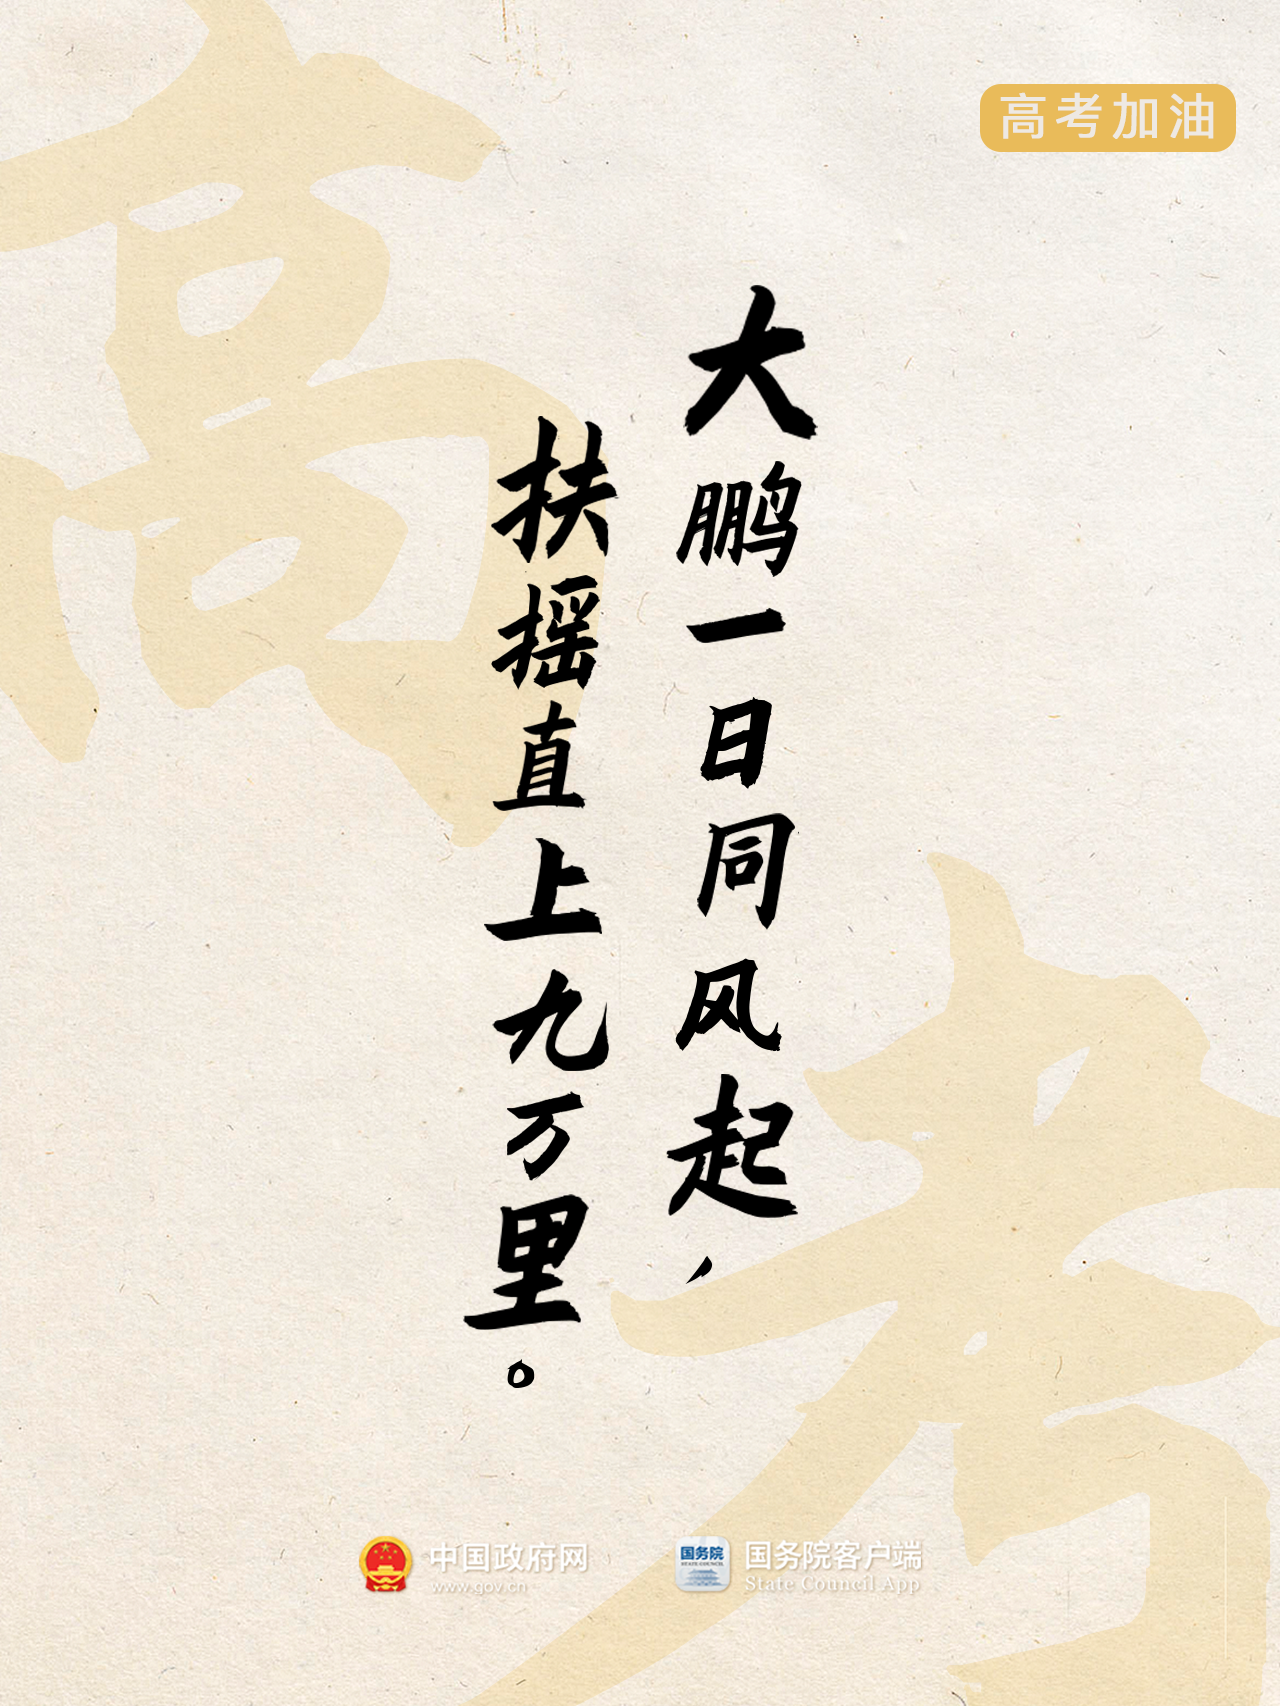 高考加油
大鹏一日同风起，
扶摇直上九万里。
高
考
中国政府网
www.gov.cn
国务院
STATE COUNCIL
国务院客户端
State Council App